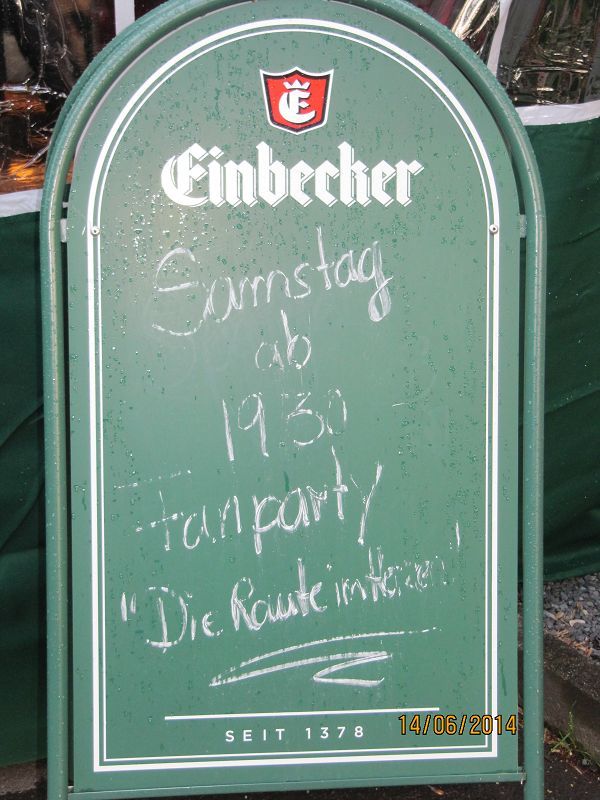 E
Einbecker
Samstag
ab
19 30
Fanparty
"Die Raute im Herzen"
SEIT 1378
14/06/2014